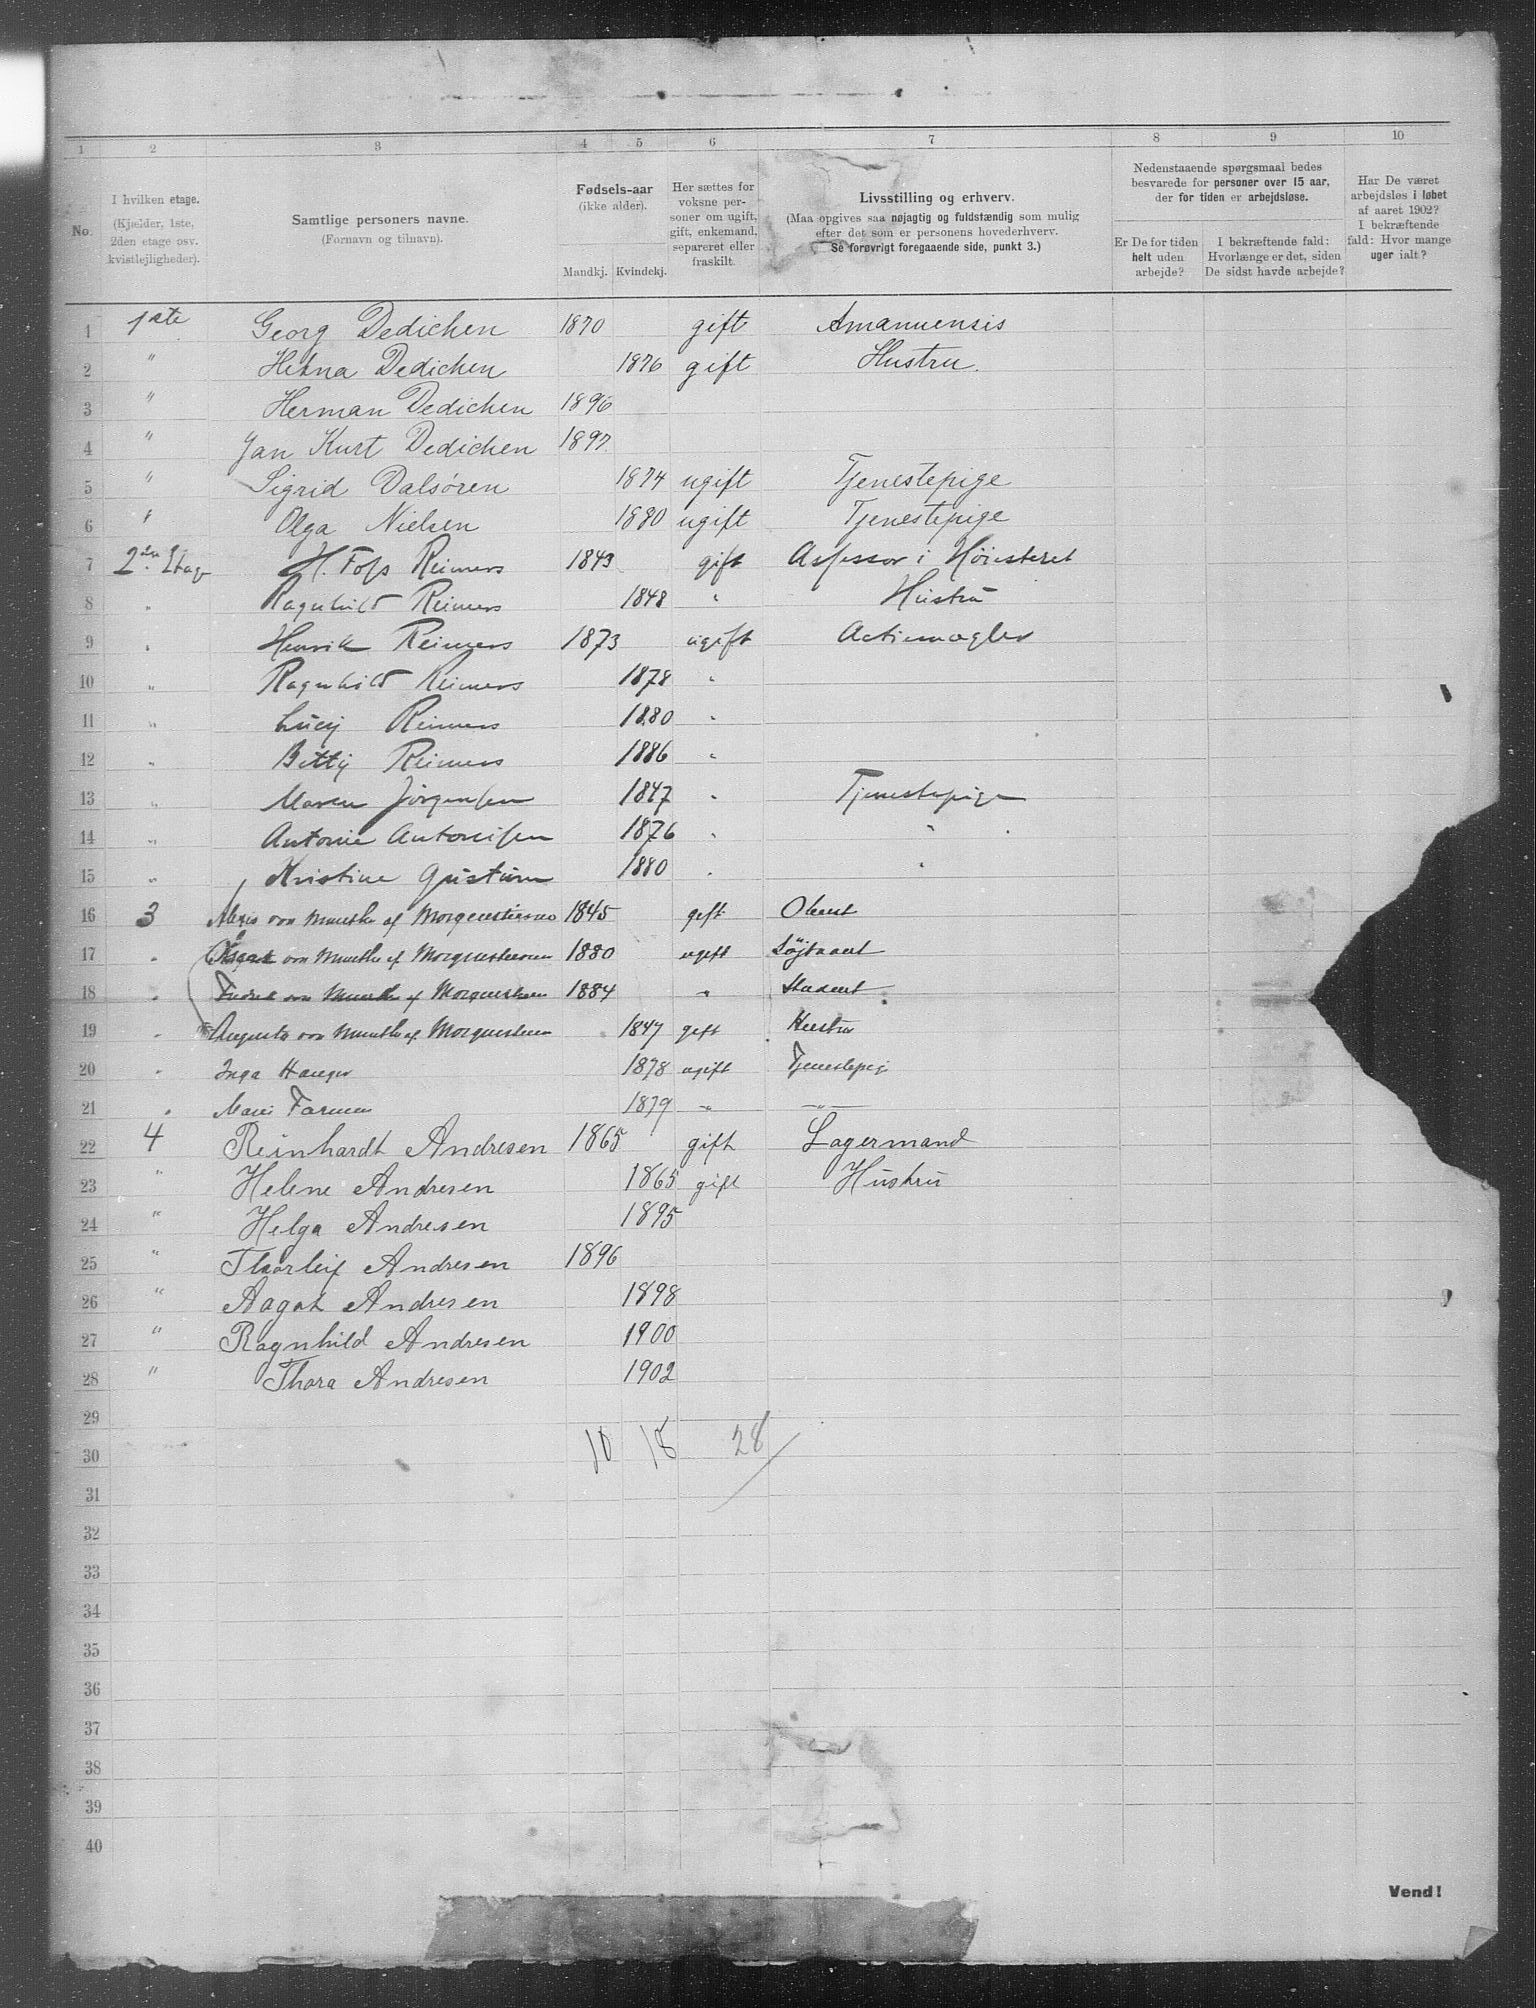 1 2 3 4 5 6 7 8 9 10
No.
I hvilken etage.
(Kjælder, 1ste,
2den etage osv.
kvistlejligheder).
Samtlige personers navne.
(Fornavn og tilnavn).
Fødsels-aar
(ikke alder).
Mandkj. Kvindekj.
Her sættes for
voksne per-
soner om ugift,
gift, enkemand,
separeret eller
fraskilt.
Livsstilling og erhverv.
(Maa opgives saa nøjagtig og fuldstændig som mulig
efter det som er personens hovederhverv.
Se forøvrigt foregaaende side, punkt 3.)
Nedenstaaende spørgsmaal bedes
besvarede for personer over 15 aar,
der for tiden er arbejdsløse.
Er De for tiden
helt uden
arbejde?
I bekræftende fald:
Hvorlænge er det, siden
De sidst havde arbejde?
Har De været
arbejdsløs i løbet
af aaret 1902?
I bekræftende
fald: Hvor mange
uger ialt?
1 1ste Georg Dedichen 1870 gift Amanuensis
2 " Dedichen 1876 gift Hustru.
3 " Herman Dedichen 1896
4 " Jan Kurt Dedichen 1897.
5 " Sigrid Dalsören 1874 ugift Tjenestepige
6 " Olga Nielsen 1880 ugift Tjenestepige
7 2den Etage H. Foss Reimers 1843 gift Assessor i Höiesteret
8 " Ragnhild Reimers 1848 " Hustru
9 " Henrik Reimers 1873 ugift Actiemægler
10 " Ragnhild Reimers 1878 "
11 " Lucy Reimers 1880 "
12 " Betty Reimers 1886 "
13 " Maren Jörgensen 1847 " Tjenestepige
14 " Antonie Antonisen 1876 " "
15 " Kristine 1880 " "
16 3 Alexis von Munthe af Morgenstierne 1845 gift Oberst
17 " von Munthe af Morgenstierne 1880 ugift
18 " Fredrik von Munthe af Morgenstierne 1884 " Student
19 " Augusta von Munthe af Morgenstierne 1847 gift Hustru
20 " Inga 1878 ugift Tjenestepige
21 " 1879 " "
22 4 Reinhardt Andresen 1865 gift Lagermand
23 " Helene Andresen 1865 gift Hustru
24 " Helga Andresen 1895
25 " Thorleif Andresen 1896
26 " Aagot Andresen 1898
27 " Ragnhild Andresen 1900
28 " Thora Andresen 1902
29
30 10 18 28
31
32
33
34
35
36
37
38
39
40
Vend!